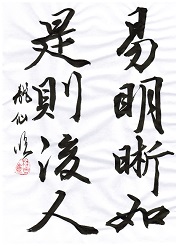 易明晰如
是則後人